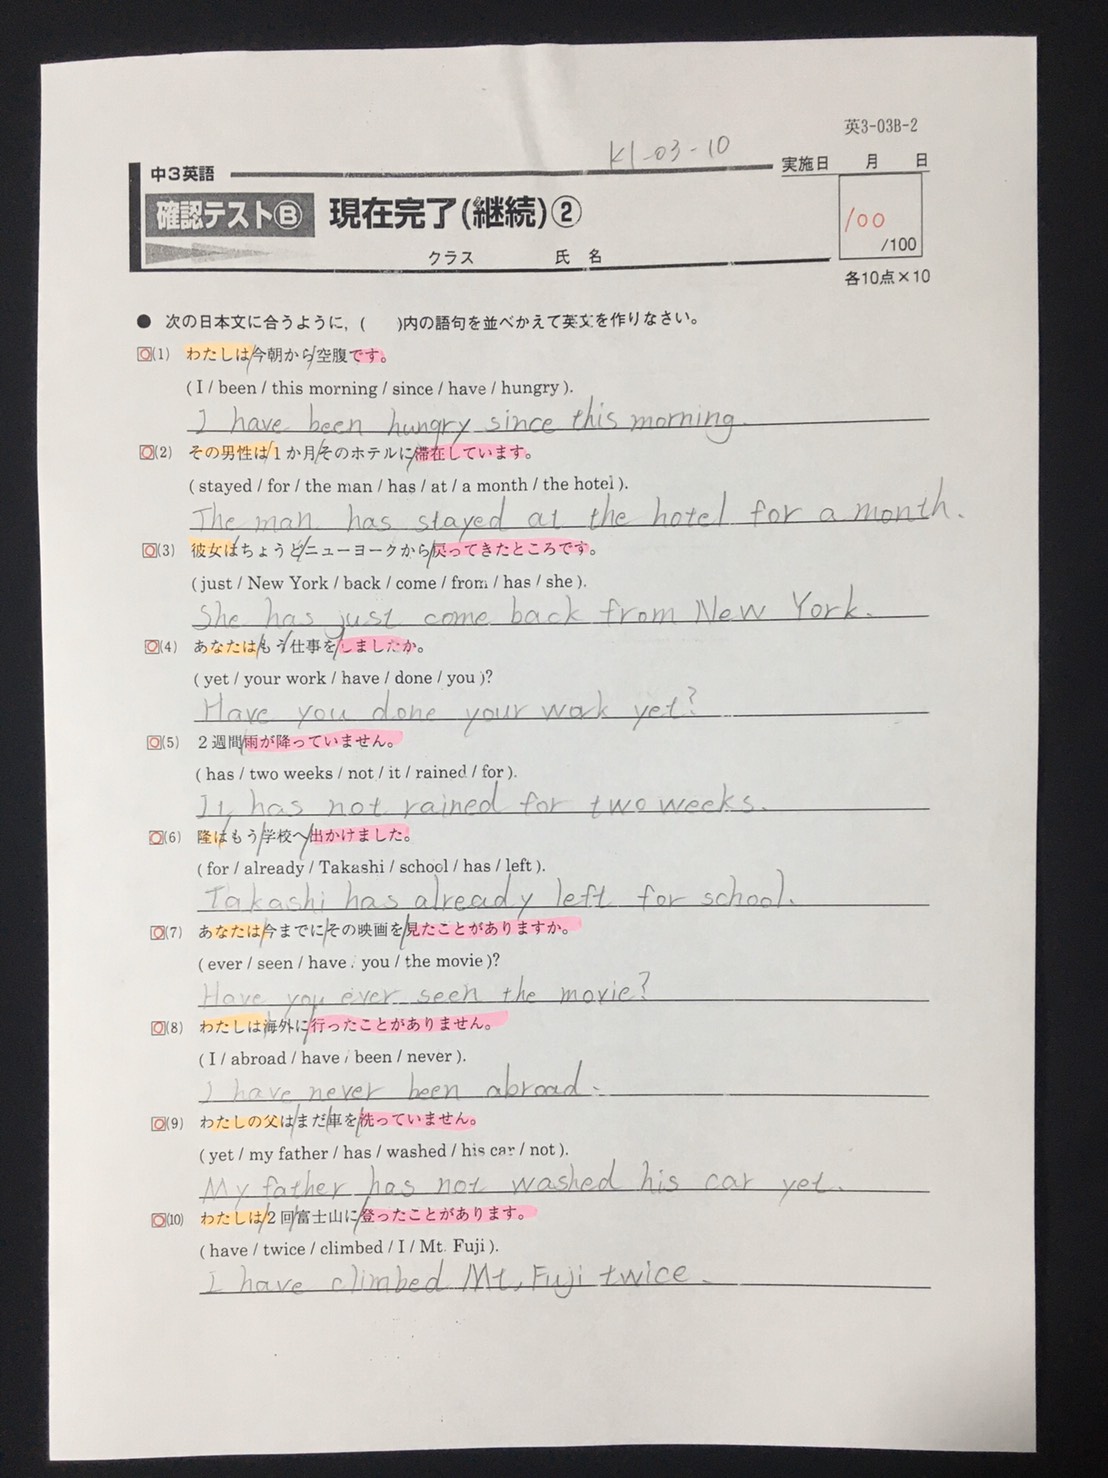 英3-03B-2
K1-03-10
中3英語
実施日 月 日
確認テストⒷ 現在完了(継続)②
100
/100
クラス 氏名
各10点×10
● 次の日本文に合うように,( )内の語句を並べかえて英文を作りなさい。
(1) わたしは/今朝から/空腹です。
(I / been / this morning / since / have / hungry).
I have been hungry since this morning.
(2) その男性は/1か月/そのホテルに/滞在しています。
(stayed / for / the man / has / at / a month / the hotel).
The man has stayed at the hotel for a month.
(3) 彼女は/ちょうど/ニューヨークから/戻ってきたところです。
(just / New York / back / come / from / has / she).
She has just come back from New York.
(4) あなたは/もう/仕事を/しましたか。
(yet / your work / have / done / you)?
Have you done your work yet?
(5) 2週間/雨が降っていません。
(has / two weeks / not / it / rained / for).
It has not rained for two weeks.
(6) 隆は/もう/学校へ/出かけました。
(for / already / Takashi / school / has / left).
Takashi has already left for school.
(7) あなたは/今までに/その映画を/見たことがありますか。
(ever / seen / have / you / the movie)?
Have you ever seen the movie?
(8) わたしは/海外に/行ったことがありません。
(I / abroad / have / been / never).
I have never been abroad.
(9) わたしの父は/まだ/車を/洗っていません。
(yet / my father / has / washed / his car / not).
My father has not washed his car yet.
(10) わたしは/2回/富士山に/登ったことがあります。
(have / twice / climbed / I / Mt. Fuji).
I have climbed Mt. Fuji twice.